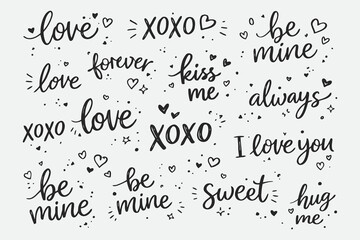 love
xoxo
be
mine
love
forever
kiss
me
always
xoxo
love
xoxo
I love you
be
mine
be
mine
sweet
hug
me